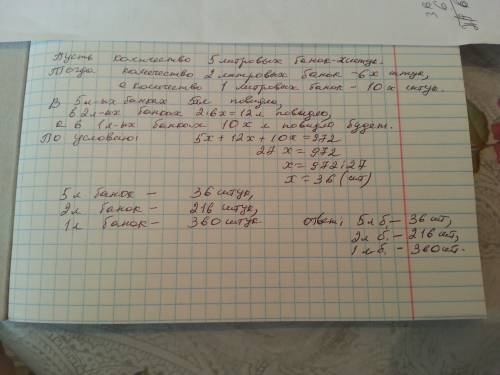 36
6
Пусть количество 5 литровых банок - x штук.
Тогда количество 2 литровых банок - 6x штук,
а количество 1 литровых банок - 10x штук
В 5л-ых банках 5x л повидло,
в 2л-ых банках 2·6x=12л повидло,
а в 1л-ых банках 10x л повидло будет.
По условию: 5x + 12x + 10x = 972
27x = 972
x = 972:27
x = 36 (шт)
5л банок - 36 штук,
2л банок - 216 штук,
1л банок - 360 штук
ответ: 5л б. - 36 шт,
2л б. - 216 шт,
1л б. - 360 шт.